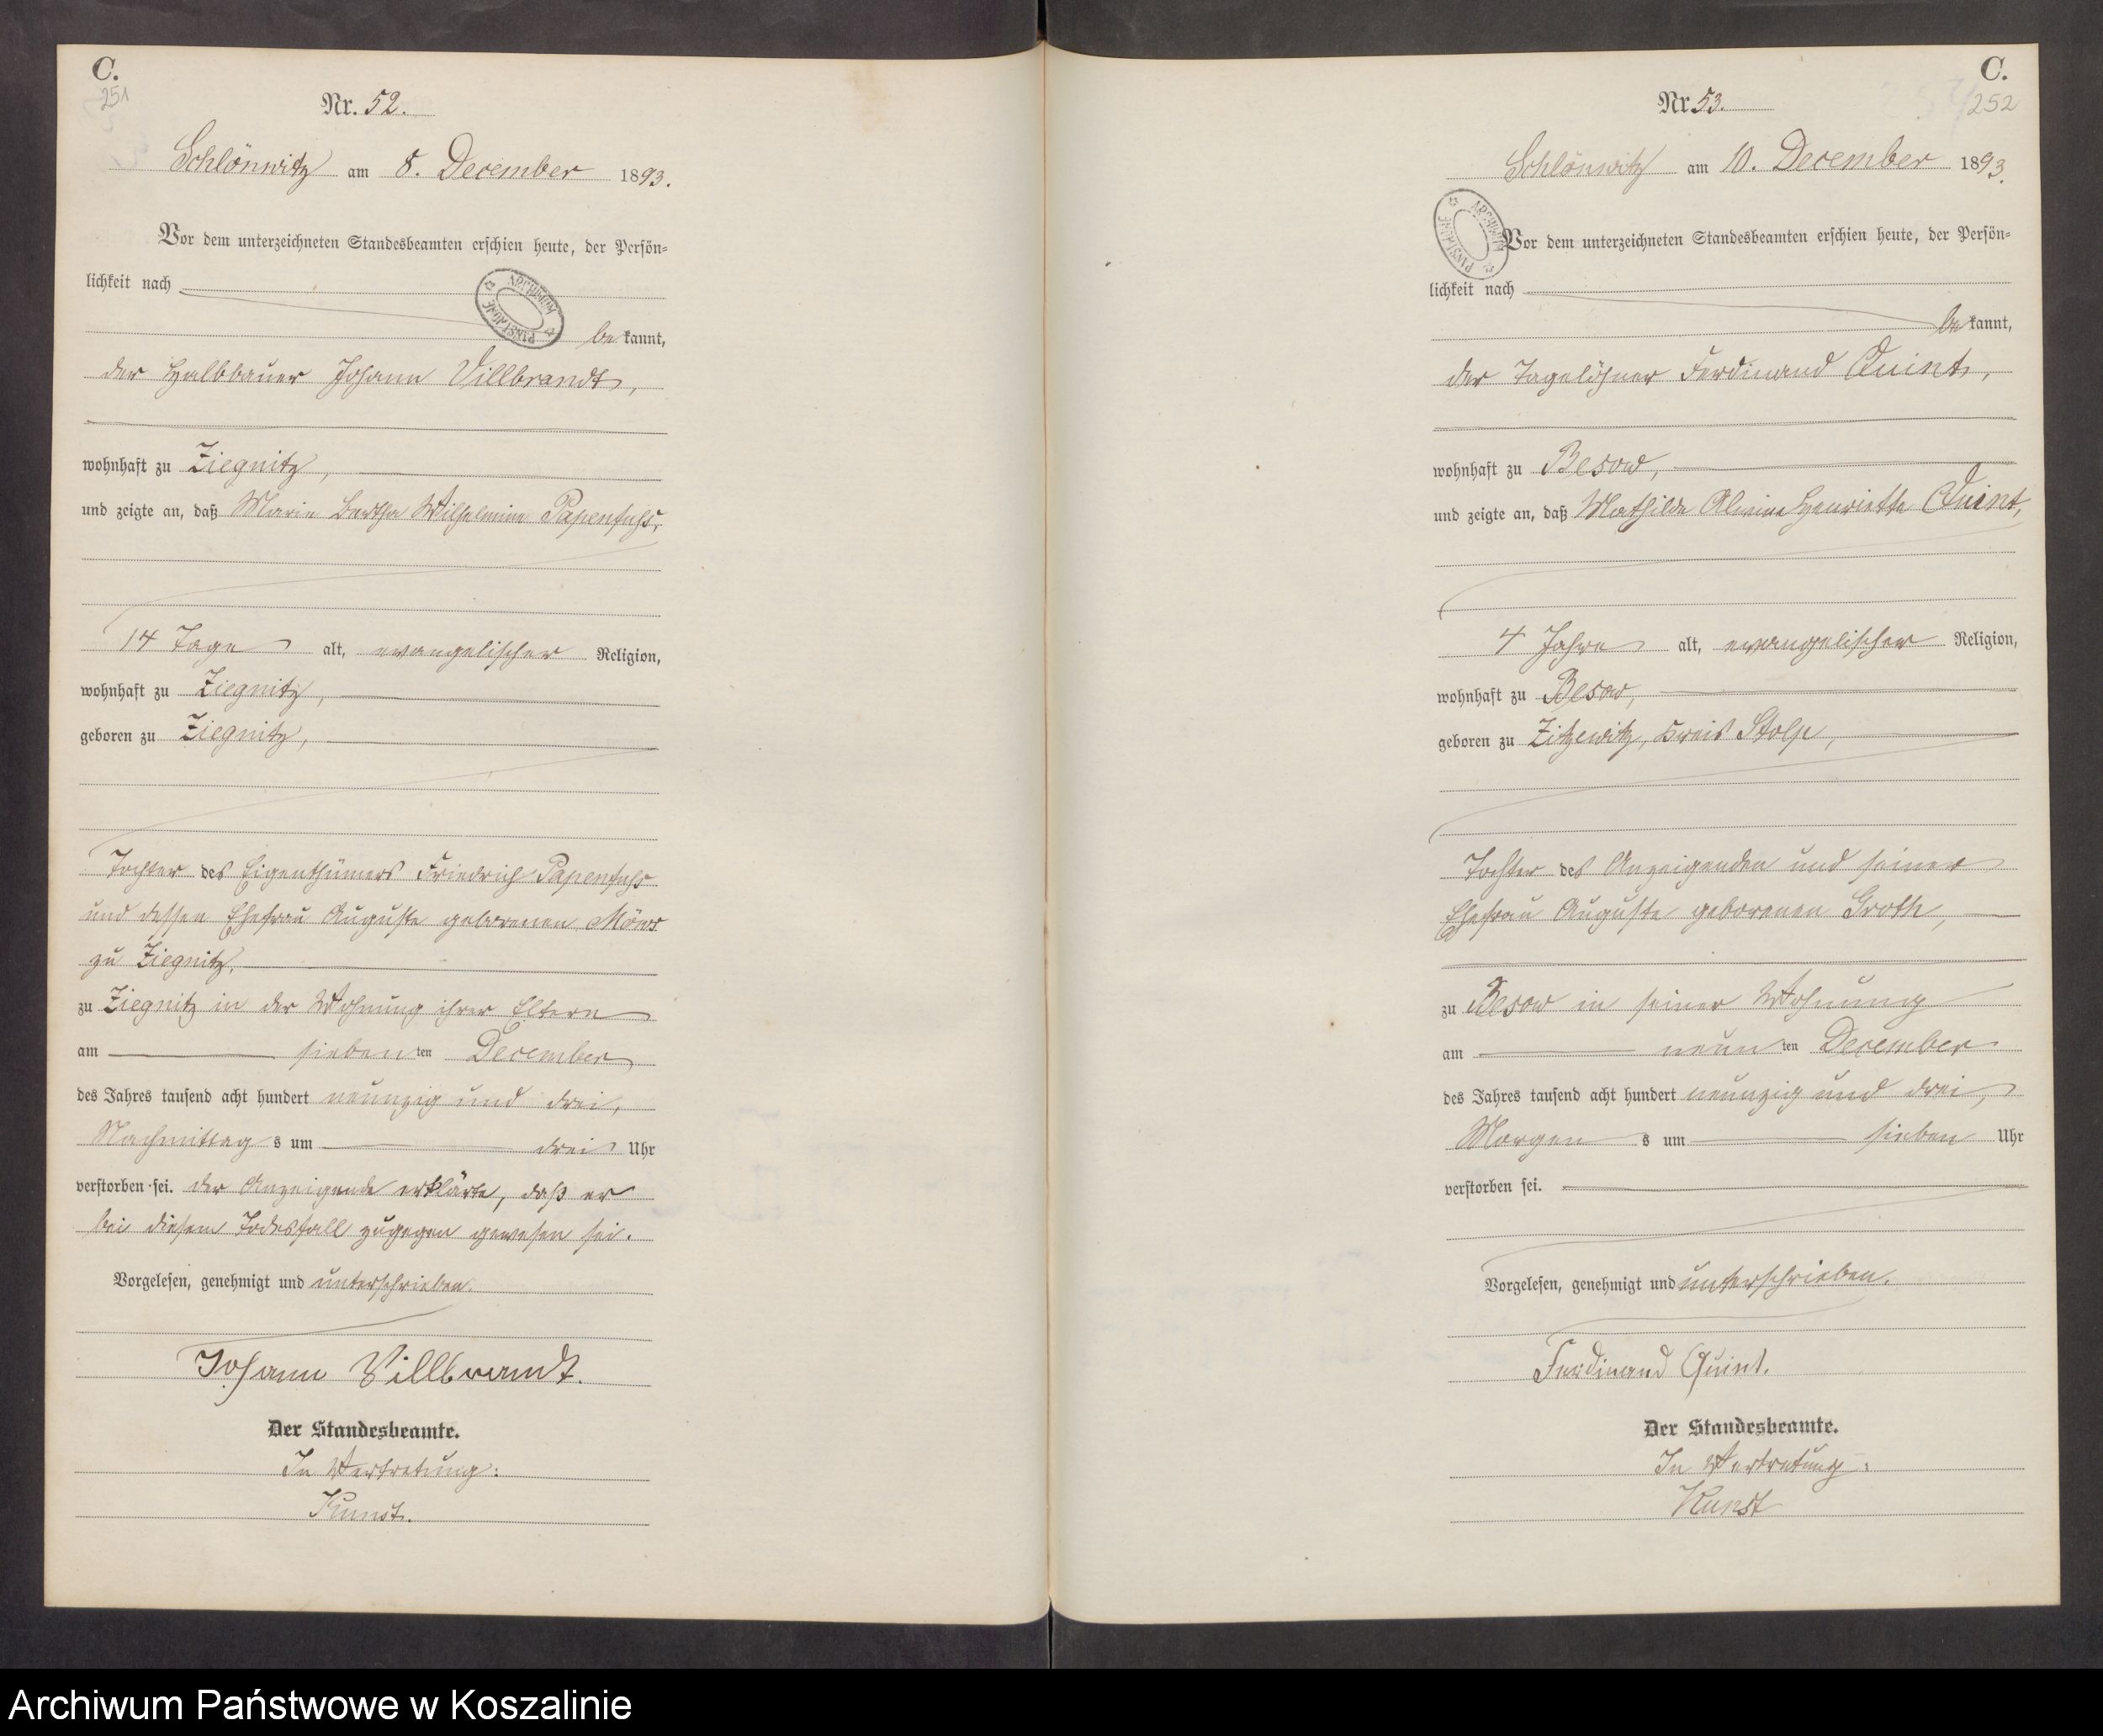 C.
251
Nr. 52.
Schlönwitz am 8. December 1893.
Vor dem unterzeichneten Standesbeamten erschien heute, der Persön-
lichkeit nach
ARCHIWUM PAŃSTWOWE
bekannt,
der Halbbauer Johann Villbrandt,
wohnhaft zu Ziegnitz,
und zeigte an, daß Marie Bertha Wilhelmine Papenfuhs,
14 Tage alt, evangelischer Religion,
wohnhaft zu Ziegnitz,
geboren zu Ziegnitz,
Tochter des Eigenthümers Friedrich Papenfuhs
und dessen Ehefrau Auguste geborenen
zu Ziegnitz,
zu Ziegnitz in der Wohnung ihrer Eltern
am siebenten December
des Jahres tausend acht hundert neunzig und drei,
Nachmittags um drei Uhr
verstorben sei. der Anzeigende erklärte, daß er
bei diesem Todesfall zugegen gewesen sei.
Vorgelesen, genehmigt und unterschrieben.
Johann Villbrandt.
Der Standesbeamte.
In Vertretung:
Kunst.
C.
252
Nr. 53.
Schlönwitz am 10. December 1893.
ARCHIWUM PAŃSTWOWE
Vor dem unterzeichneten Standesbeamten erschien heute, der Persön-
lichkeit nach
bekannt,
der Tagelöhner Ferdinand Quint,
wohnhaft zu Besow,
und zeigte an, daß Mathilde Alwine Henriette Quint,
4 Jahre alt, evangelischer Religion,
wohnhaft zu Besow,
geboren zu Zitzewitz, Kreis Stolp,
Tochter des Anzeigenden und seiner
Ehefrau Auguste geborenen Groth,
zu Besow in seiner Wohnung
am neunten December
des Jahres tausend acht hundert neunzig und drei,
Morgens um sieben Uhr
verstorben sei.
Vorgelesen, genehmigt und unterschrieben.
Ferdinand Quint.
Der Standesbeamte.
In Vertretung:
Kunst
Archiwum Państwowe w Koszalinie